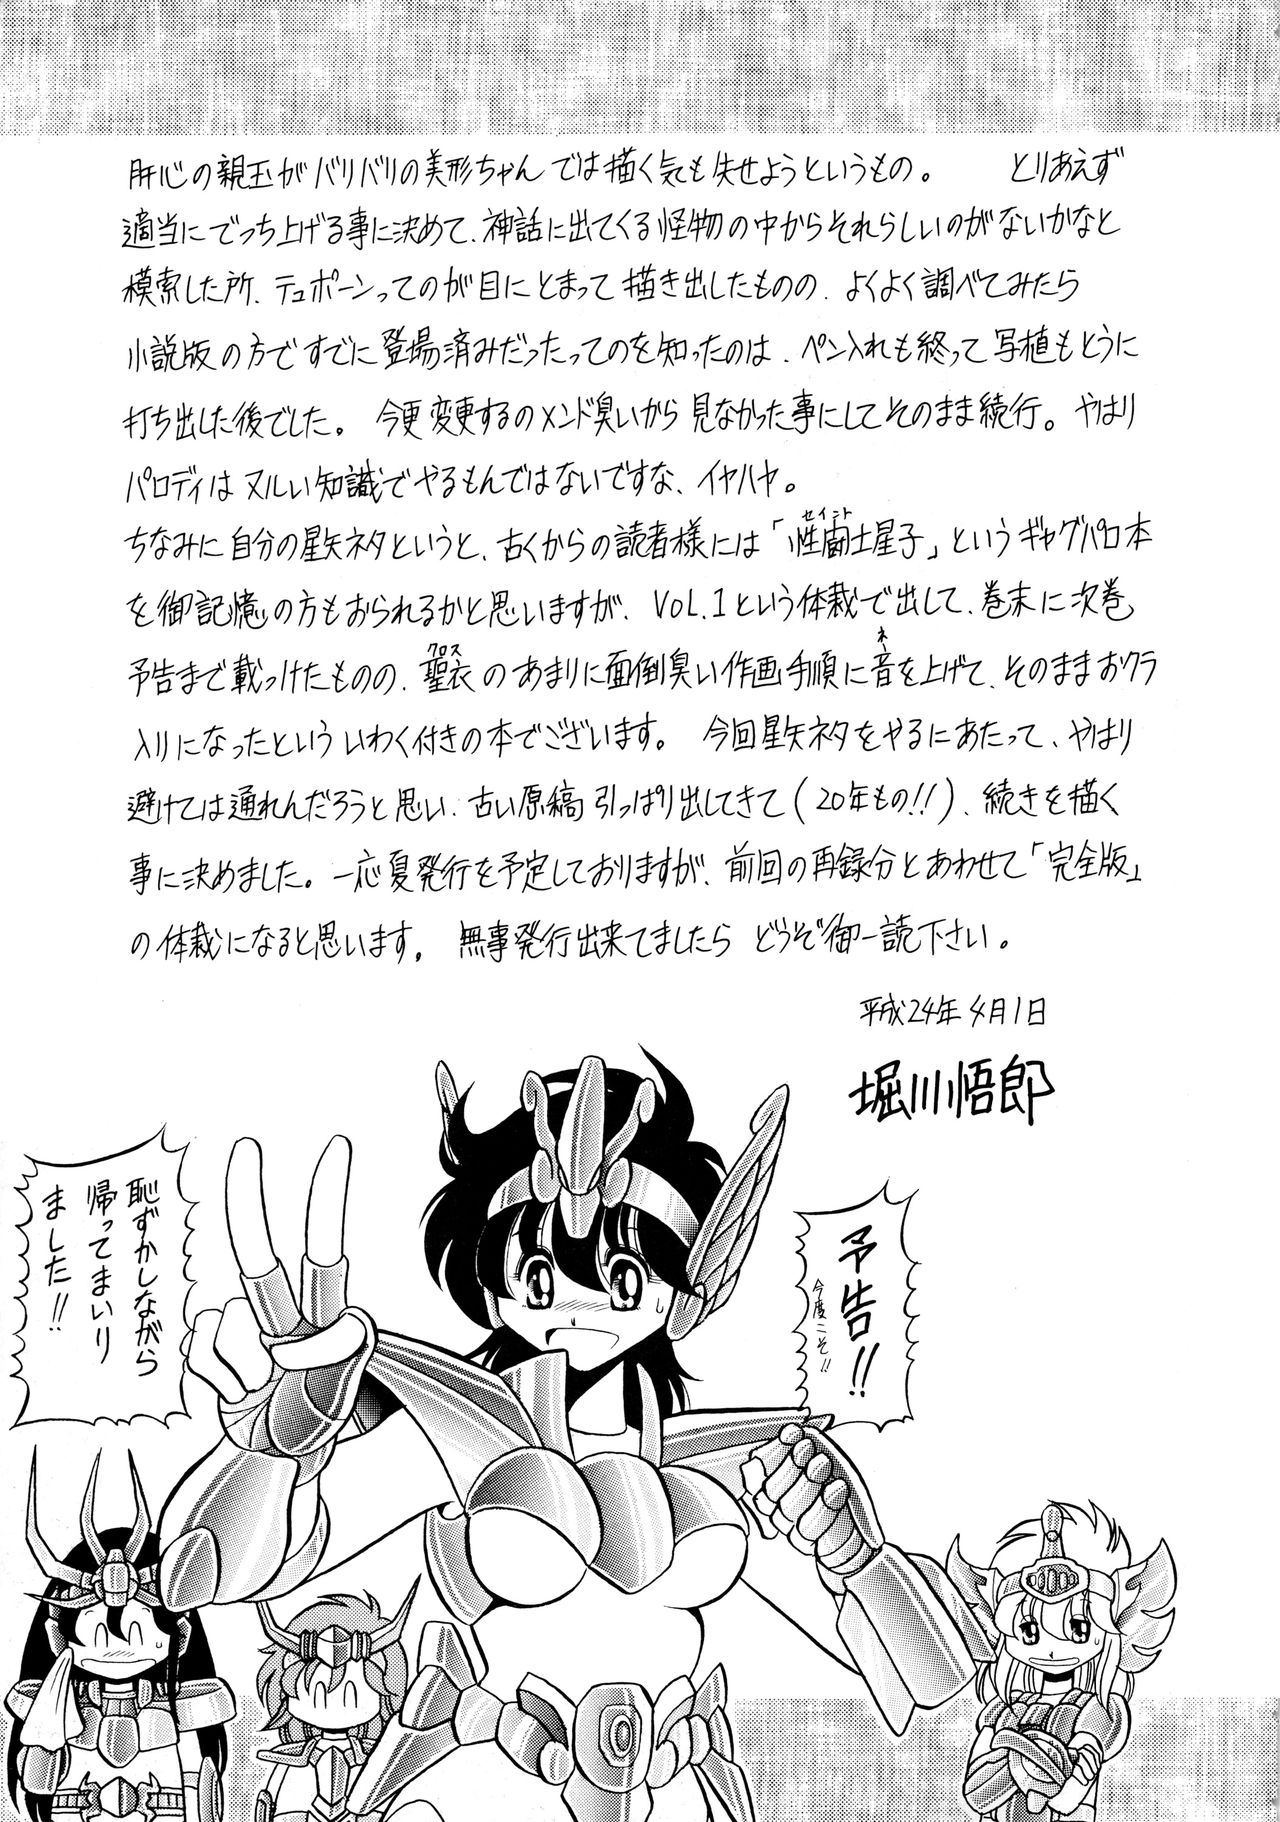 肝心の親玉がバリバリの美形ちゃんでは描く気も失せようというもの。　とりあえず
適当にでっち上げる事に決めて、神話に出てくる怪物の中からそれらしいのがないかなと
模索した所、テュポーンってのが目にとまって描き出したものの、よくよく調べてみたら
小説版の方ですでに登場済みだったってのを知ったのは、ペン入れも終って写植もとうに
打ち出した後でした。今更変更するのメンド臭いから見なかった事にしてそのまま続行。やはり
パロディはヌルい知識でやるもんではないですな、イヤハヤ。
ちなみに自分の星矢ネタというと、古くからの読者様には「性闘士星子」というギャグパロ本
セイント
を御記憶の方もおられるかと思いますが、VOL.1という体裁で出して、巻末に次巻
予告まで載っけたものの、聖衣のあまりに面倒臭い作画手順に音を上げて、そのままおクラ
クロス
ネ
入りになったといういわく付きの本でございます。今回星矢ネタをやるにあたって、やはり
避けては通れんだろうと思い、古い原稿引っぱり出してきて(20年もの!!)、続きを描く
事に決めました。一応夏発行を予定しておりますが、前回の再録分とあわせて「完全版」
の体裁になると思います。無事発行出来てましたらどうぞ御一読下さい。
平成24年4月1日
堀川悟郎
予告!!
今度こそ!!
恥ずかしながら
帰ってまいり
ました!!